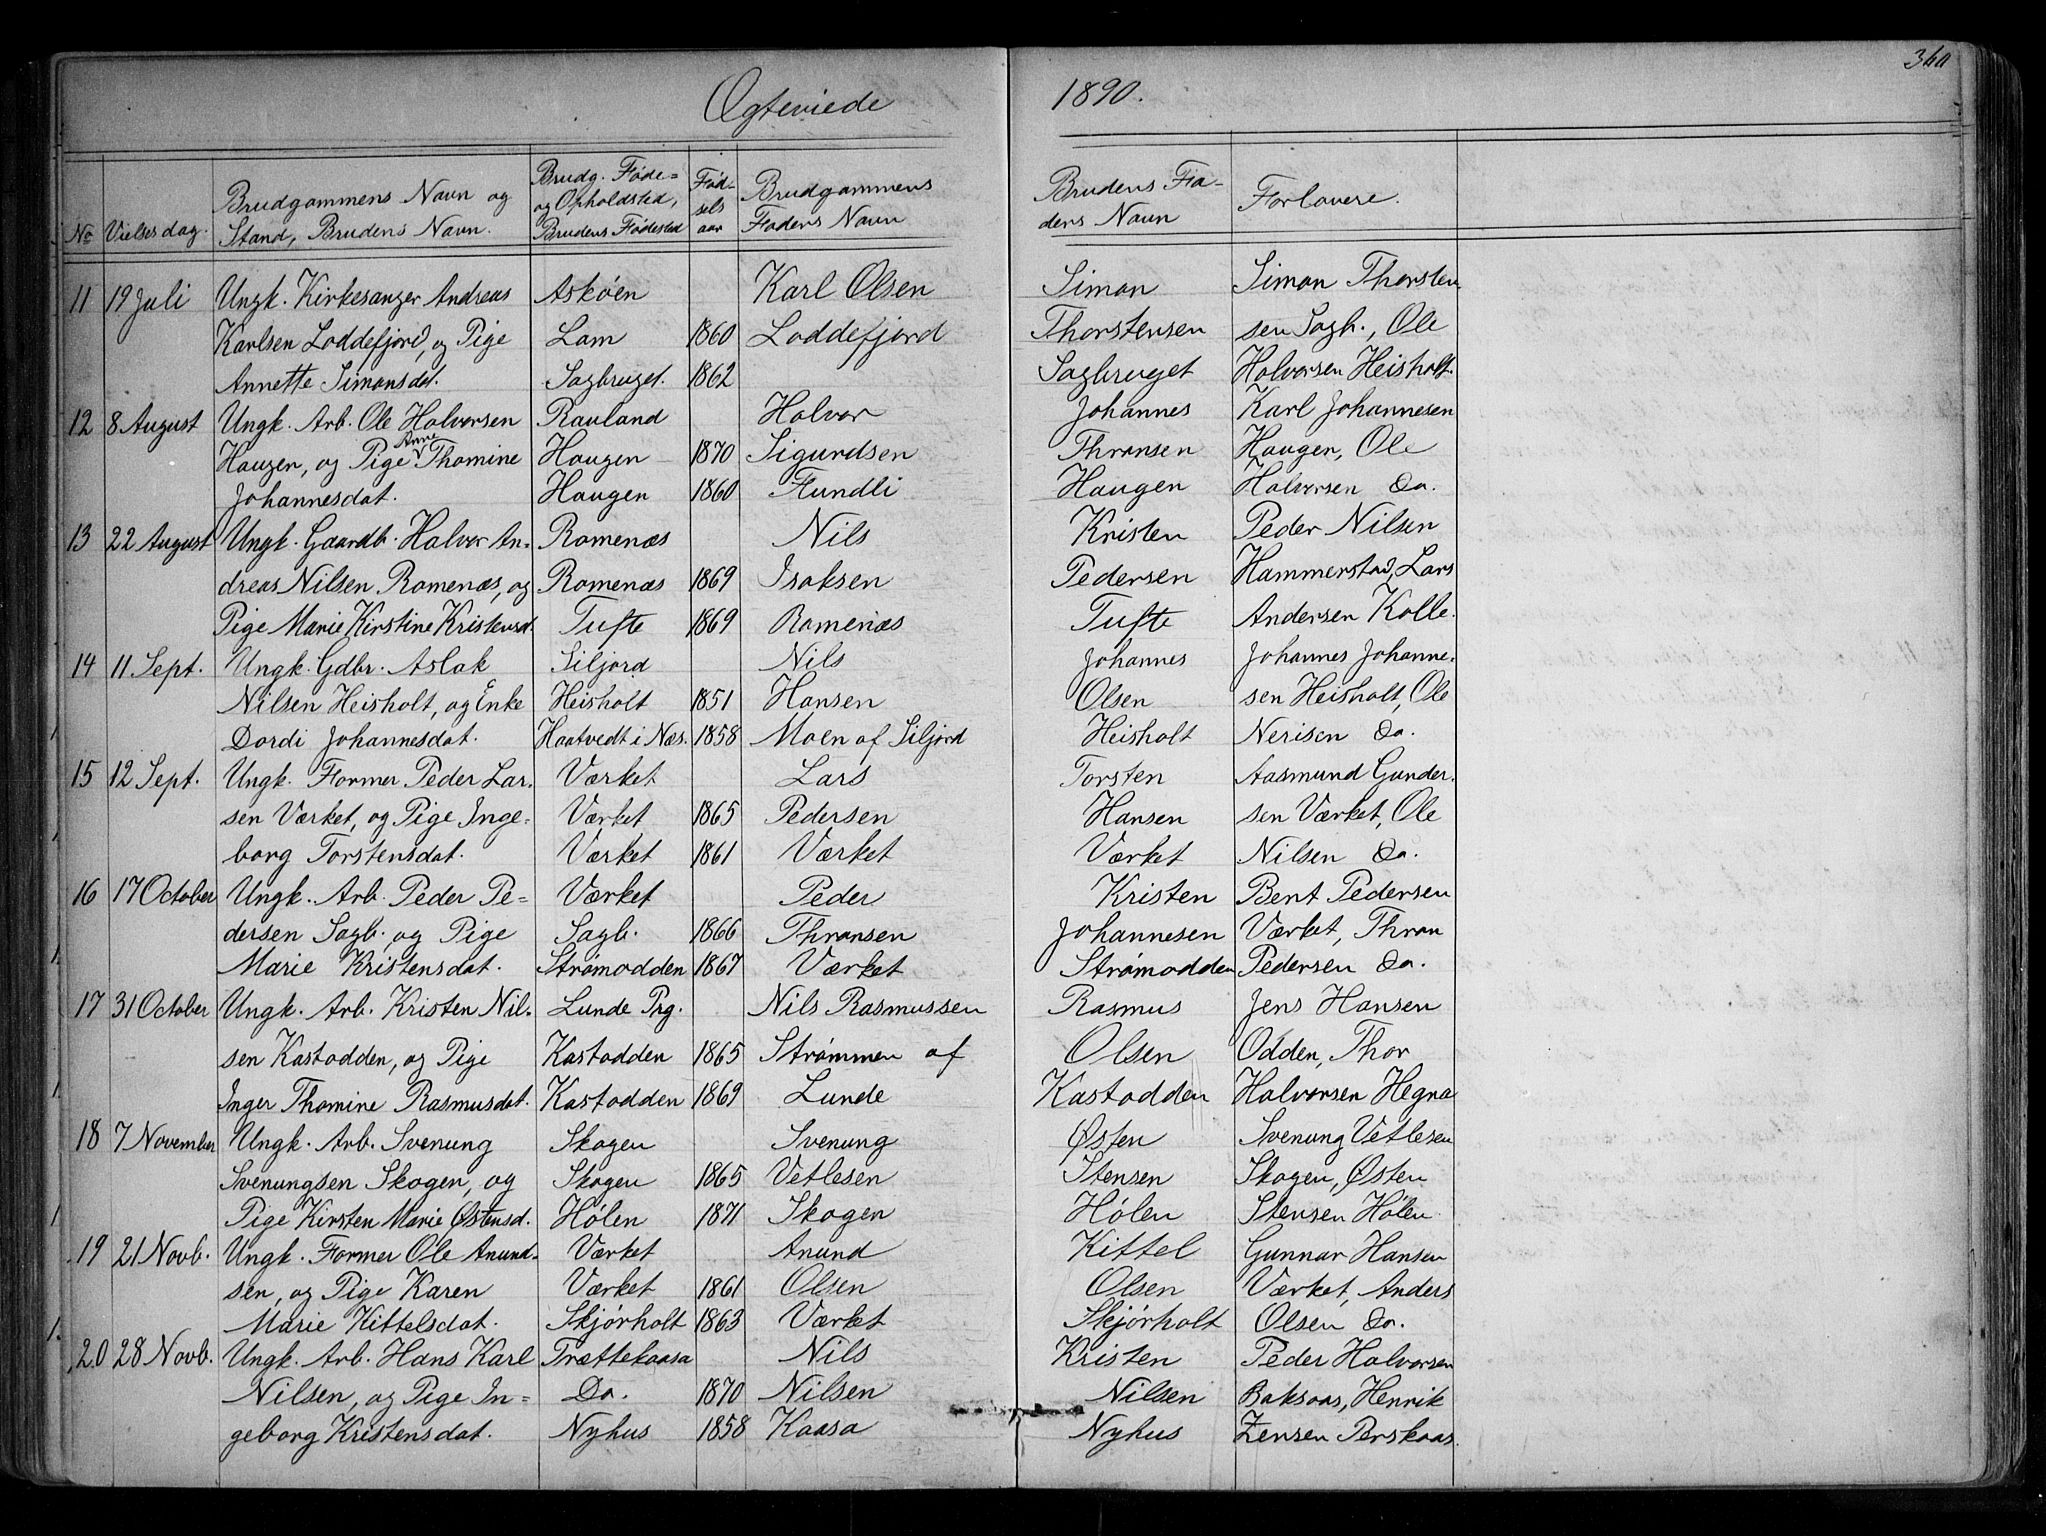 360
Ægteviede 1890.
No Vielsesdag. Brudgommens Navn og Stand, Brudens Navn. Brudg. Føde= og Opholdsted, Brudens Fødested Fød-sels aar Brudgommens Faders Navn Brudens Fa-ders Navn Forlovere.
11 19 Juli Ungk. Kirkesanger Andreas Askøen Karl Olsen Simon Simon Thorsten-
Karlsen Loddefjord, og Pige Lom 1860 Loddefjord Thorstensen sen Sagb., Ole
Annette Simonsdat. Sagbruget. 1862 Sagbruget Halvorsen Heisholt.
12 8 August Ungk. Arb. Ole Halvorsen Rauland Halvor Johannes Karl Johannesen
Haugen, og Pige Anne Thomine Haugen 1870 Sigurdsen Thronsen Haugen, Ole
Johannesdat. Haugen 1860 Flundli Haugen Halvorsen Do.
13 22 August Ungk. Gaardb. Halvor An- Romenæs Nils Kristen Peder Nilsen
dreas Nilsen Romenæs, og Romenæs 1869 Isaksen Pedersen Hammerstad, Lars
Pige Marie Kirstine Kristensd. Tufte 1869 Romenæs Tufte Andersen Kolle.
14 11 Sept. Ungk. Gdbr. Aslak Siljord Nils Johannes Johannes Johanne-
Nilsen Heisholt, og Enke Heisholt 1851 Hansen Olsen sen Heisholt, Ole
Dordi Johannesdat. Haatvedt i Næs. 1858 Moen af Siljord Heisholt Nerison Do.
15 12 Sept. Ungk. Former Peder Lar- Værket Lars Torsten Aasmund Gunder-
sen Værket, og Pige Inge= Værket 1865 Pedersen Hansen sen Værket, Ole
borg Torstensdat. Værket 1861 Værket Værket Nilsen Do.
16 17 October Ungk. Arb. Peder Pe= Værket Peder Kristen Bent Pedersen
dersen Sagb. og Pige Sagb. 1866 Thronsen Johannesen Værket, Thron
Marie Kristensdat. Strømodden 1867 Værket Strømodden Pedersen Do.
17 31 October Ungk. Arb. Kristen Nil- Lunde Prg. Nils Rasmussen Rasmus Jens Hansen
sen Kastodden, og Pige Kastodden 1865 Strømmen af Olsen Odden, Thor
Inger Thomine Rasmusdat. Kastodden 1869 Lunde Kastodden Halvorsen Hegna
18 7 November Ungk. Arb. Svenung Skogen Svenung Østen Svenung Vetlesen
Svenungsen Skogen, og Skogen 1865 Vetlesen Stensen Skogen, Østen
Pige Kirsten Marie Østensd. Hølen 1871 Skogen Hølen Stensen Hølen
19 21 Novb. Ungk. Former Ole Anund- Værket Anund Kittel Gunnar Hansen
sen, og Pige Karen Værket 1861 Olsen Olsen Værket, Anders
Marie Kittelsdat. Skjørholt 1863 Værket Skjørholt Olsen Do.
20 28 Novb. Ungk. Arb. Hans Karl Trættekaasa Nils Kristen Peder Halvorsen
Nilsen, og Pige In= Do. 1870 Nilsen Nilsen Baksaas, Henrik
geborg Kristensdat. Nyhus 1858 Kaasa Nyhus Zensen Perskaas.